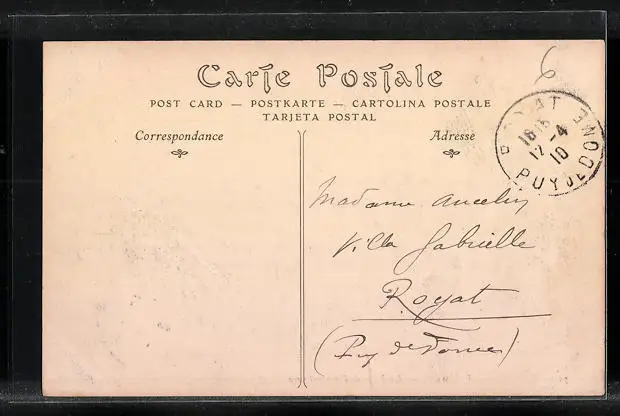 Carte Postale
POST CARD — POSTKARTE — CARTOLINA POSTALE
TARJETA POSTAL
Correspondance
Adresse
6
ROYAT
17-4
10
PUY DE DOME
Madame Ancelin
Villa Gabrielle
Royat
(Puy de Dôme)